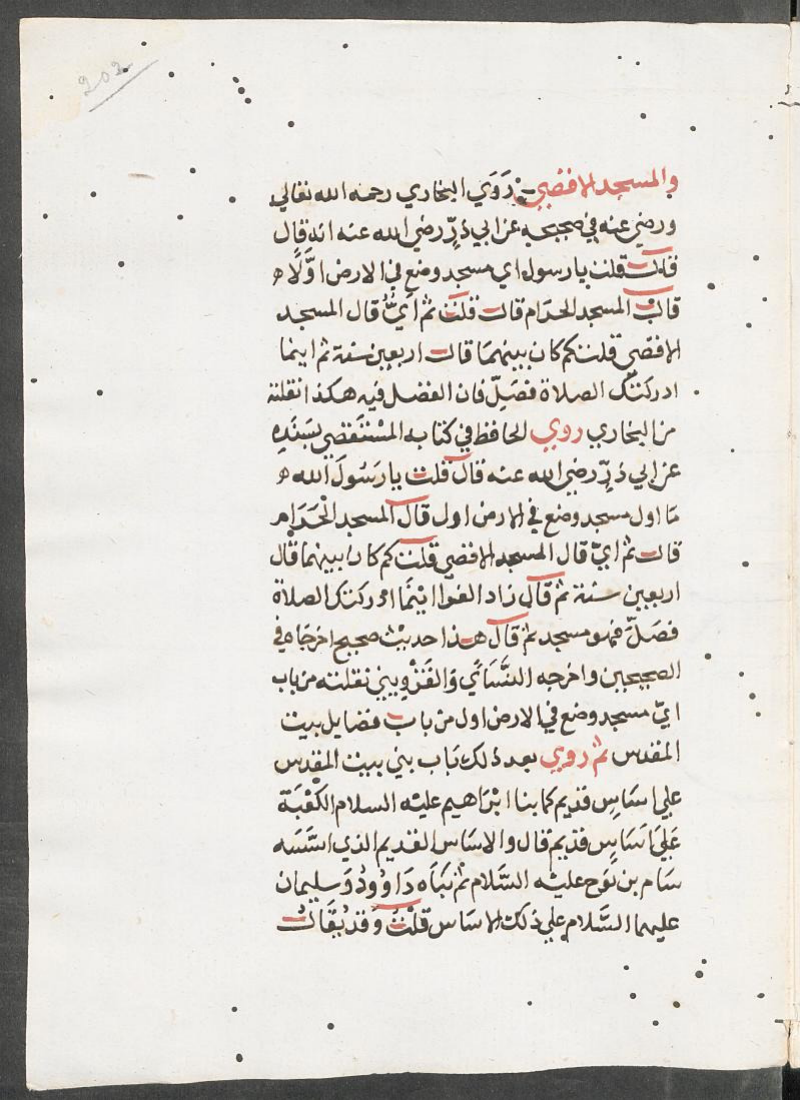 202
والمسجد الاقصي رَوَي البخاري رحمه الله تعالي
ورضي عنه في صحيحه عن ابي ذرّ رضي الله عنه انه قال
قال قلت يا رسول اي مسجد وضع في الارض اوّلا ه
قال المسجد الحرام قال قلت ثم ايّ قال المسجد
الاقصي قلت كم كان بينهما قال اربعين سنة ثم اينما
ادركتك الصلاة فصَلِّ فان الفضل فيه هكذا نقلته
من البخاري روي الحافظ في كتابه المستقصي بسَنَدِه
عن ابي ذرّ رضي الله عنه قال قلت يا رَسُولَ الله ه
مَا اول مسجد وضع في الارض اول قال المسجد الحَرَام
قال ثم ايّ قال المسجد الاقصي قلت كم كان بينهما قال
اربعين سنة ثم قال زاد الفوا اينَما ادركتك الصلاة
فصَلّ فهو مسجد ثم قال هذا حديث صحيح اخرجَاه في
الصحيحين واخرجه النَّسَائي وَالقَزْوِيني نقلته من باب
ايّ مسجد وضع في الارض اول من باب فضايل بيت
المقدس ثم روي بعد ذلك بَاب بني بيت المقدس
علي اسَاسٍ قديم كما بنا ابْرَاهيم عليه السلام الكَعْبَة
عَلي اَسَاسٍ قديم قال والاسَاس القديم الذي اسّسَه
سَام بن نوَح عليه السَّلام ثم بَنَاه دَاوُود وَسليمان
عليهما السَّلام علي ذلك الاسَاس قلْتُ وَقد يُقَالُ